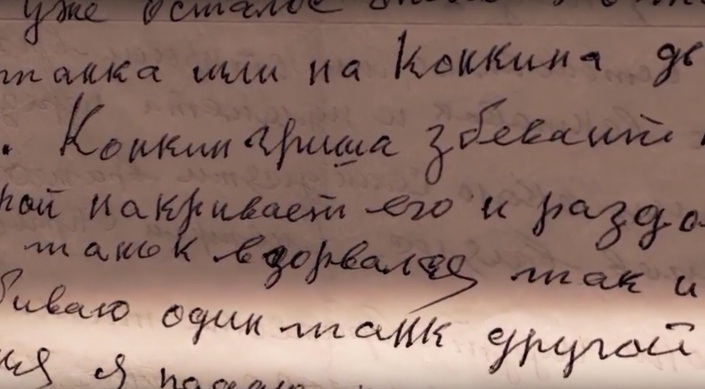 уже осталос
танка шли на Конкина дв
. Конкин Гриша збеваит
рой накривает его и раздо
танок вздорвалася так и
биваю один танк другой
ия я падаю